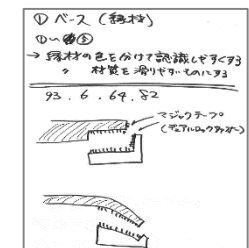 ① ベース (縁材)
①い ③
→ 縁材の色を分けて認識しやすくする
〃 材質を滑りやすいものにする
93.6.64.82
マジックテープ
(デュアルロックファスナー)